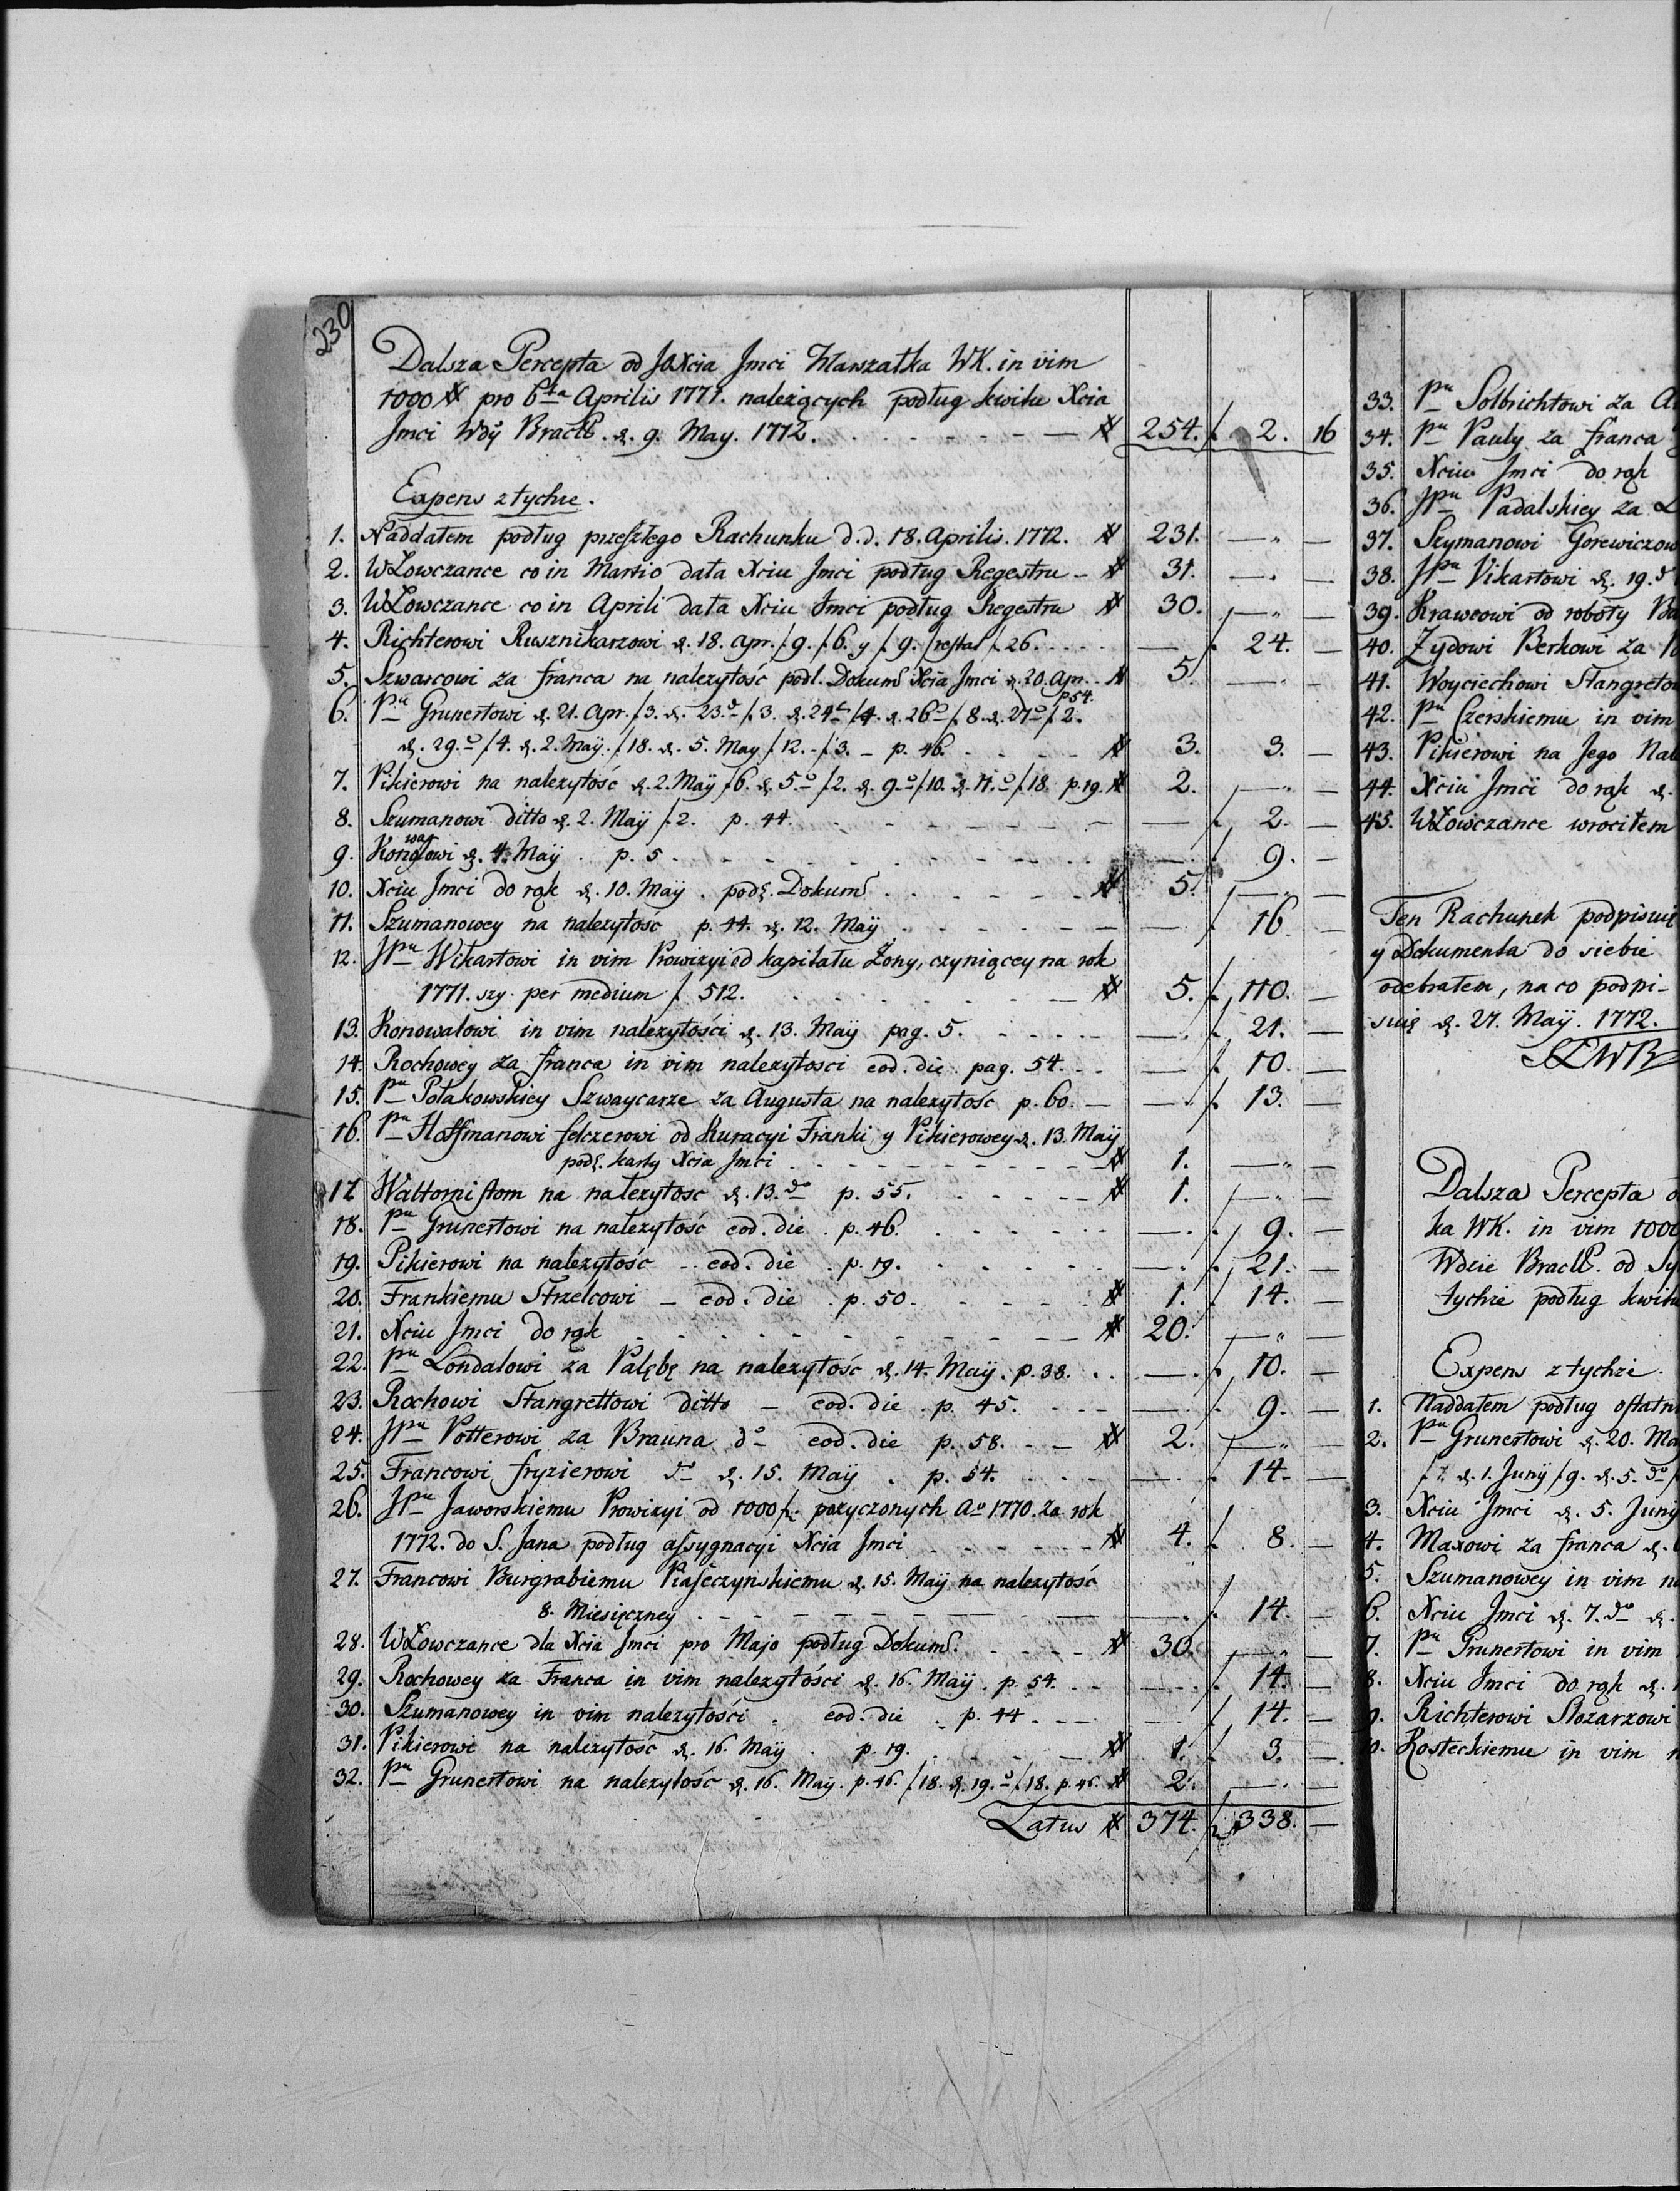 230
Dalsza Percepta od JOXcia Jmci Marszałka WK. in vim
1000 # pro 6ta Aprilis 1771. należących podług kwitu Xcia
Jmci Wdy Bracł. d. 9. May. 1772. # 254. f. 2. 16
Expens z tychże.
1. Naddałem podług przeszłego Rachunku d.d. 18. Aprilis. 1772. # 231. — —
2. WŁowczance co in Martio dała Xciu Jmci podług Regestru - # 31. — —
3. WŁowczance co in Aprili dała Xciu Jmci podług Regestru # 30. — —
4. Richterowi Rusznikarzowi d. 18. Apr. f. 9. f. 6. y f. 9. restat f. 26. — f. 24. —
5. Szwarcowi za franca na należytość podł. Dokum Xcia Jmci d. 20. Apr. # 5. — —
p 54.
6. Pu Grunertowi d. 21. Apr. f. 3. d. 23. do f. 3. d. 24 f. 4. d. 26 do f. 8. d. 27 do f. 2.
d. 29. do f. 4. d. 2. Maÿ. f. 18. d. 5. May f. 12. - f. 3. - p. 46. # 3. 3. —
7. Pikierowi na należytość d. 2. Maÿ f. 6. d. 5. do f. 2. d. 9. do f. 10. d. 11. do f. 18. p. 19. # 2. — —
8. Szumanowi ditto d. 2. Maÿ f. 2. p. 44. — f. 2. —
9. Konowałowi d. 4. Maÿ. p. 5. — f. 9. —
10. Xciu Jmci do rąk d. 10. Maÿ. podł. Dokum # 5. — —
11. Szumanowey na należytość p. 44. d. 12. Maÿ — f. 16. —
12. JPu Wikartowi in vim Prowizyi od kapitału Żony, czyniącey na rok
1771. szy per medium f. 512. # 5. f. 110. —
13. Konowałowi in vim należytości d. 13. Maÿ pag. 5. — f. 21. —
14. Rochowey za franca in vim należytosci eod. die pag. 54. — f. 10. —
15. Pu Polakowskiey Szwaycarze za Augusta na należytość p. 60. — f. 13. —
16. Pu Hoffmanowi felczerowi od Kuracyi Franki y Pikierowey d. 13. Maÿ
podł. karty Xcia Jmci # 1. — —
17. Waltornistom na należytość d. 13. do p. 55. # 1. — —
18. Pu Grunertowi na należytość eod. die. p. 46. — f. 9. —
19. Pikierowi na należytość - eod. die. p. 19. — f. 21. —
20. Frankiemu Strzelcowi - eod. die. p. 50. # 1. f. 14. —
21. Xciu Jmci do rąk # 20. — —
22. Pu Londalowi za Palębę na należytość d. 14. Maÿ. p. 38. — f. 10. —
23. Rochowi Stangrettowi ditto - eod. die. p. 45. — f. 9. —
24. JPu Potterowi za Brauna do - eod. die p. 58. # 2. — —
25. Francowi fryzierowi do d. 15. Maÿ. p. 54. — f. 14. —
26. JPu Jaworskiemu Prowizyi od 1000 f. pożyczonych Ao 1770. za rok
1772. do S. Jana podług assygnacyi Xcia Jmci # 4. f. 8. —
27. Francowi Burgrabiemu Piaseczynskiemu d. 15. Maÿ na należytość
8. Miesięczney — f. 14. —
28. WŁowczance dla Xcia Jmci pro Majo podług Dokum. # 30. — —
29. Rochowey za Franca in vim należytości d. 16. Maÿ. p. 54. — f. 14. —
30. Szumanowey in vim należytości eod. die. p. 44 — f. 14. —
31. Pikierowi na należytość d. 16. Maÿ. p. 19. # 1. f. 3. —
32. Pu Grunertowi na należytość d. 16. Maÿ. p. 46. f. 18. d. 19. do f. 18. p. 46. # 2. — —
Latus # 374. f. 338. —
33. Pu Solbrichtowi za
34. Pu Pauly za franca
35. Xciu Jmci do rąk
36. JPu Padalskiey za
37. Szymanowi Gorewiczow
38. JPu Vikartowi d. 19. do
39. Krawcowi od roboty
40. Żydowi Berkowi za
41. Woyciechowi Stangretow
42. Pu Czerskiemu in vim
43. Pikierowi na Jego
44. Xciu Jmci do rąk d.
45. WŁowczance wrociłem
Ten Rachunek podpisuię
y Dokumenta do siebie
odebrałem, na co podpi-
suię d. 27. Maÿ. 1772.
Dalsza Percepta
ka WK. in vim 1000
Wdzie Bracł. od
tychże podług kwitu
Expens z tychże.
1. Naddałem podług ostatn
2. Pu Grunertowi d. 20.
f. 7. d. 1. Junÿ f. 9. d. 5. do
3. Xciu Jmci d. 5. Junÿ
4. Maxowi za franca d.
5. Szumanowey in vim
6. Xciu Jmci d. 7. do d.
7. Pu Grunertowi in vim
8. Xciu Jmci do rąk d.
9. Richterowi Slozarzowi
10. Kosteckiemu in vim